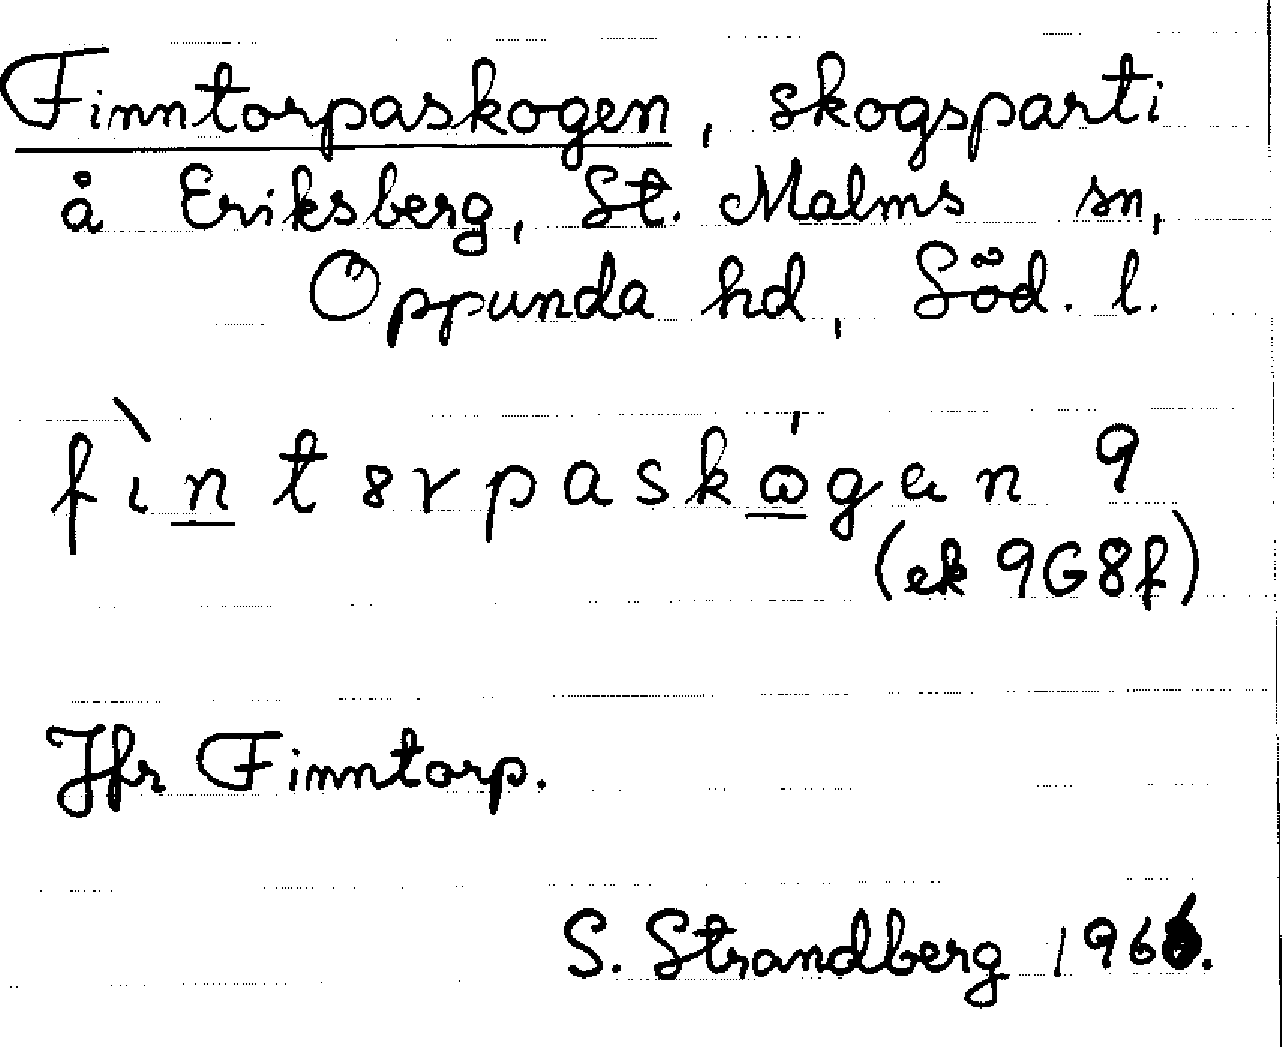 Finntorpaskogen, skogsparti
å Eriksberg, St. Malms sn,
Oppunda hd, Söd. l.
fìntɞrpaskógen 9
(ek 9G8f)
Jfr Finntorp.
S. Strandberg 1966.